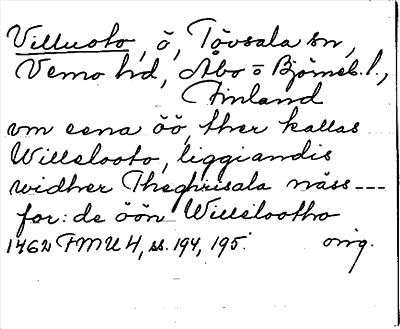 Villuoto, ö, Tövsala sn,
Vemo hd, Åbo = Björneb. l.,
Finland
vm eena öö, ther kallas
Willelooto, liggiandis
widher Theghrisala näss ---
for: de öön Willelootho
1462 FMU 4, ss. 194, 195. orig.